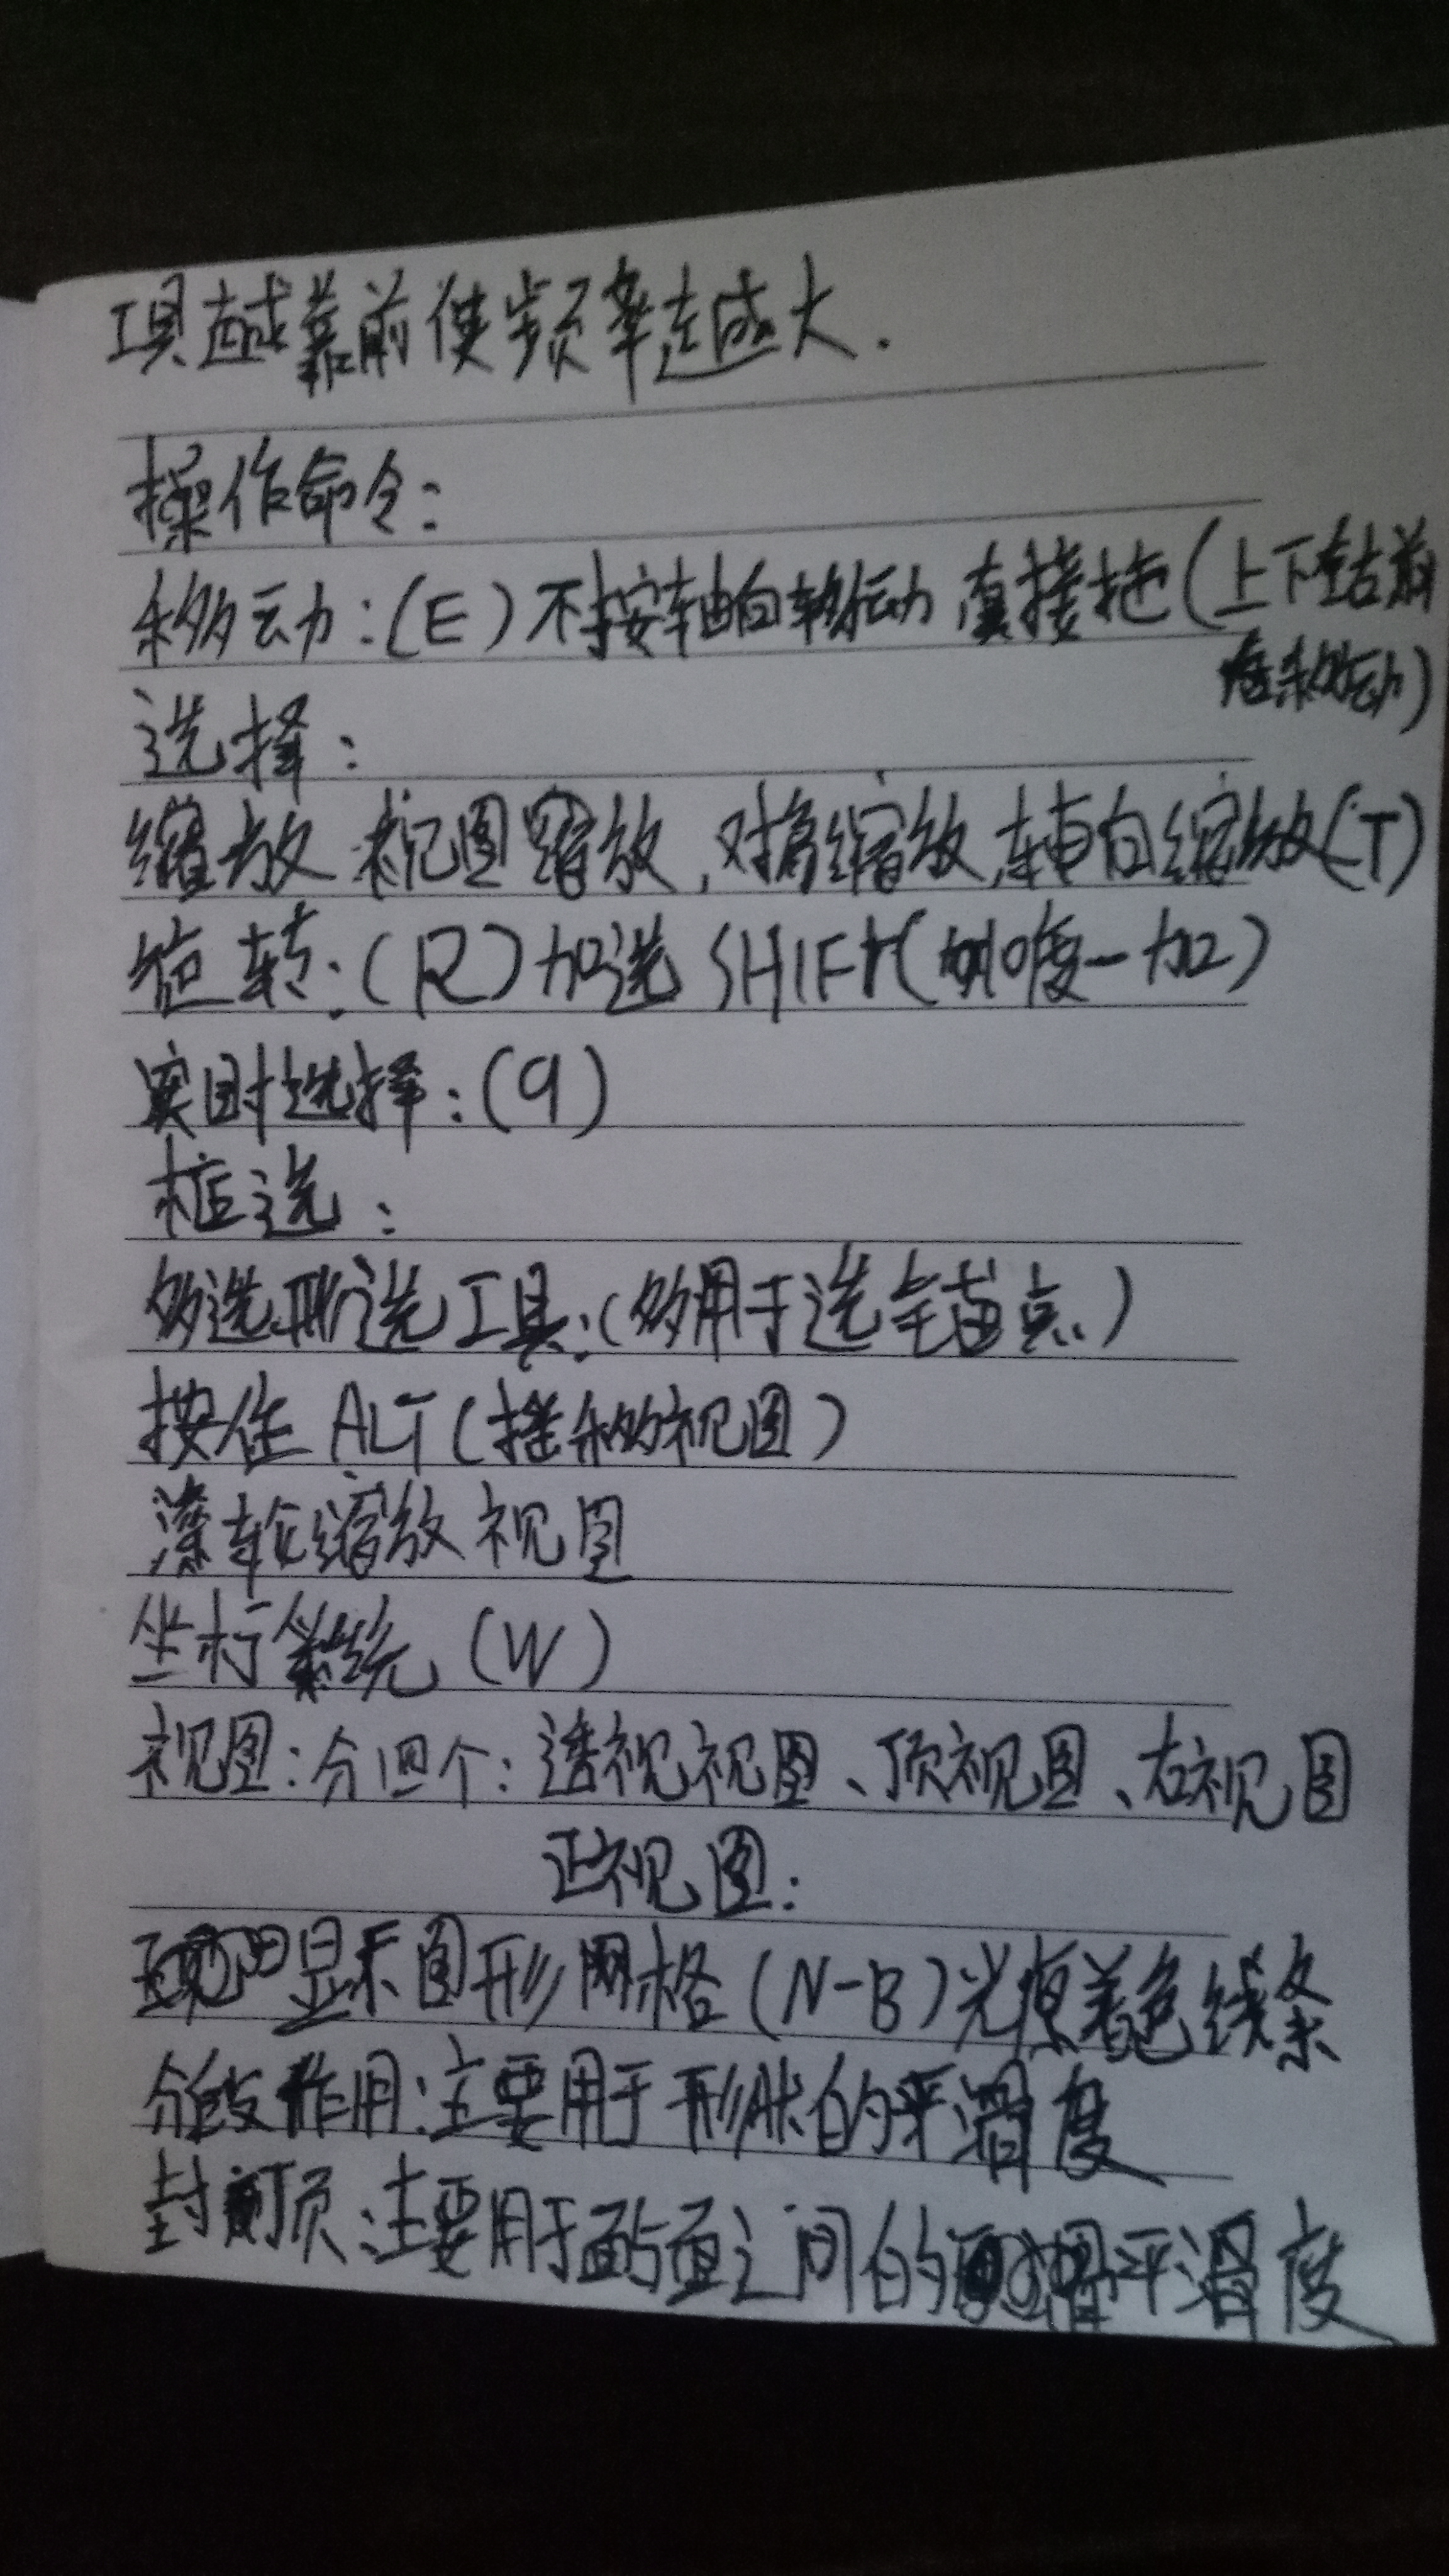 工具越靠前使频率越大.
操作命令:
移动:(E)不按轴向移动 直接拖(上下左右前
后移动)
选择:
缩放 视图缩放,对象缩放,轴向缩放(T)
旋转:(R)加选 SHIFT(10度一加)
实时选择:(9)
框选:
多选形选工具:(多用于选锚点)
按住 ALT(摇移视图)
滚轮缩放视图
坐标系统 (W)
视图:分四个:透视视图、顶视图、右视图
正视图:
显示图形网格(N-B)光源着色线条
分段作用:主要用于形状的平滑度
封顶:主要用于面与面之间的平滑度